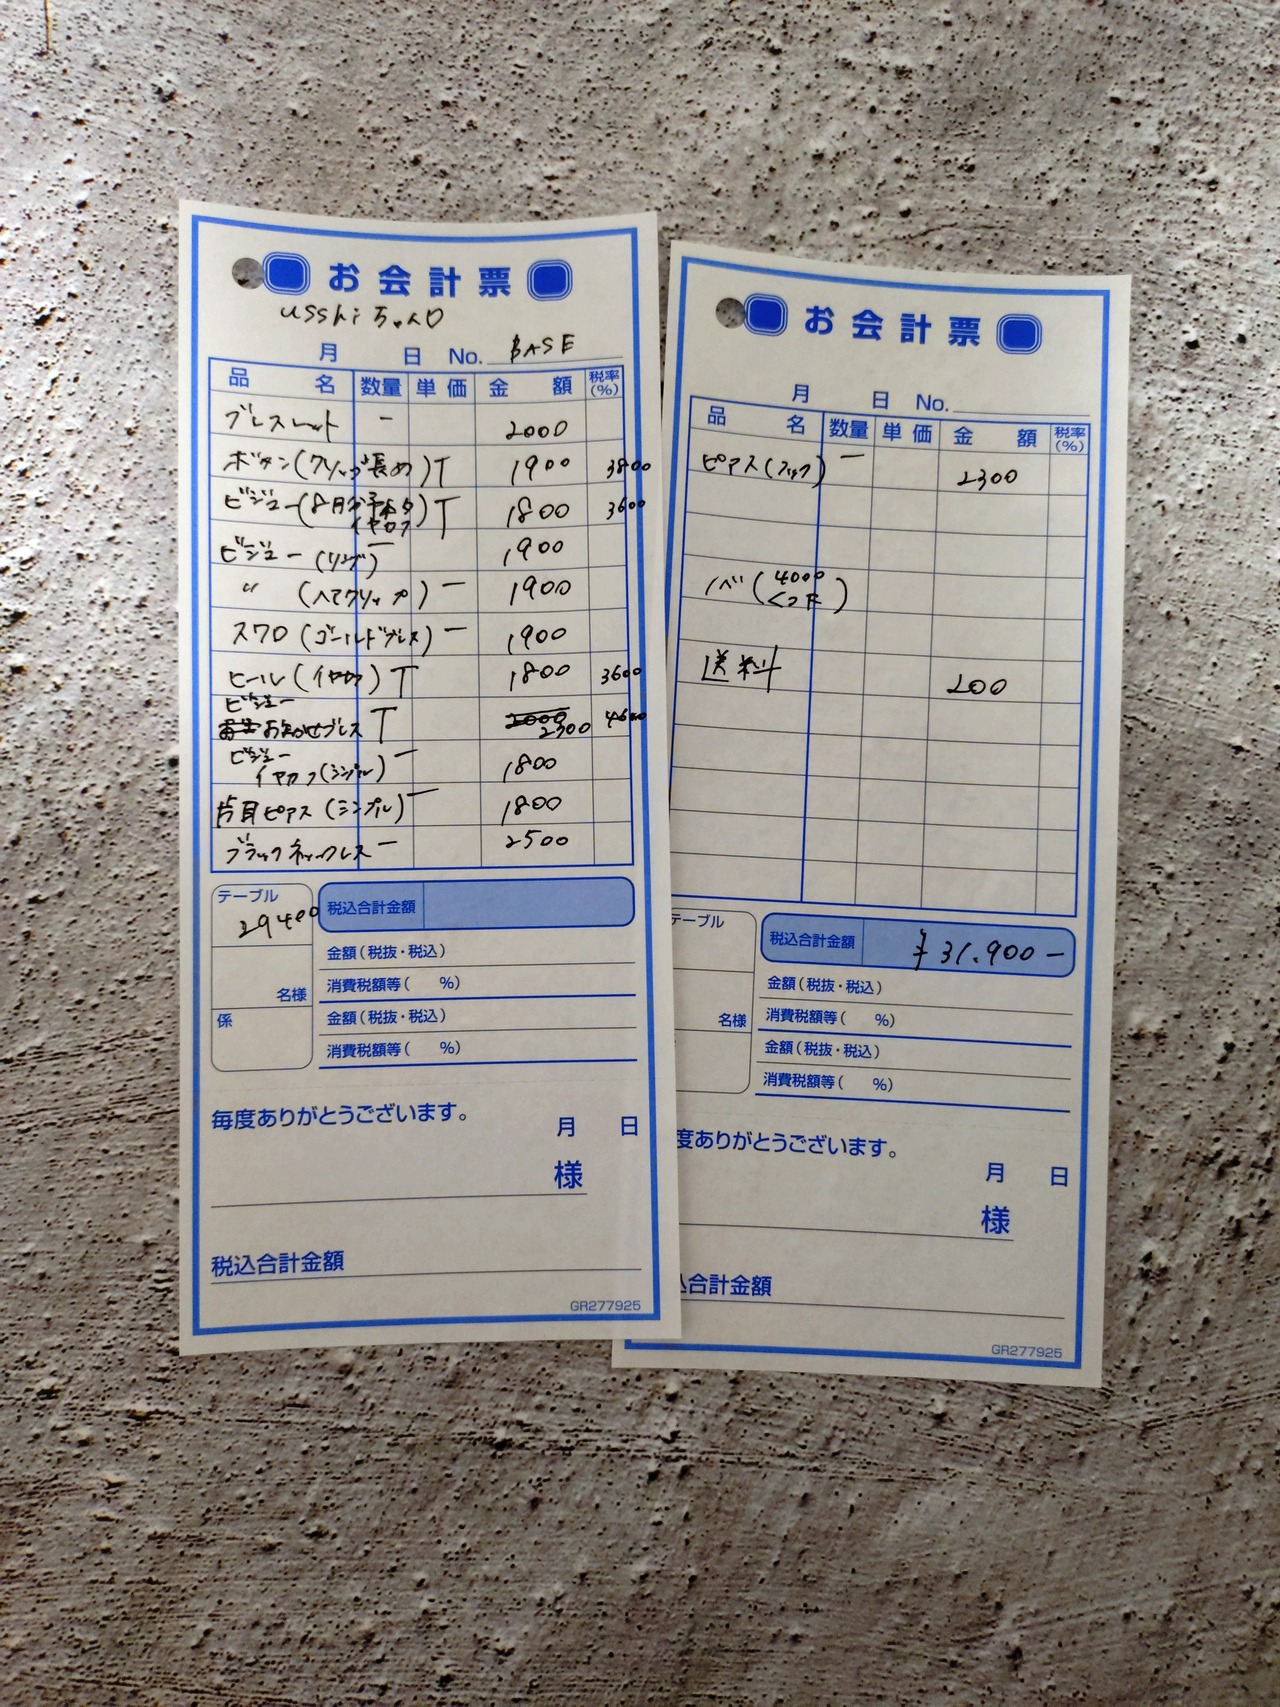 お会計票
usshiちゃん
月 日 No. BASE
品名 数量 単価 金額 税率(%)
ブレスレット 一 2000
ボタン(クリップ長め) T 1900 3800
ビジュー(8月 イヤカフ) T 1800 3600
ビジュー(リング) 一 1900
〃 (ヘアクリップ) 一 1900
スワロ(ゴールドブレス) 一 1900
ヒール(イヤカフ) T 1800 3600
ビジュー
おまかせブレス T 2000 2300 4600
ビジュー
イヤカフ(シンプル) 一 1800
片耳ピアス(シンプル) 一 1800
ブラックネックレス 一 2500
テーブル 29400
税込合計金額
金額(税抜・税込)
名様
消費税額等( %)
係
金額(税抜・税込)
消費税額等( %)
毎度ありがとうございます。
月 日
様
税込合計金額
GR277925
お会計票
月 日 No.
品名 数量 単価 金額 税率(%)
ピアス(フック) 一 2300
ノベ(4000
送料 200
テーブル
税込合計金額 ¥31.900-
金額(税抜・税込)
名様
消費税額等( %)
金額(税抜・税込)
消費税額等( %)
度ありがとうございます。
月 日
様
込合計金額
GR277925